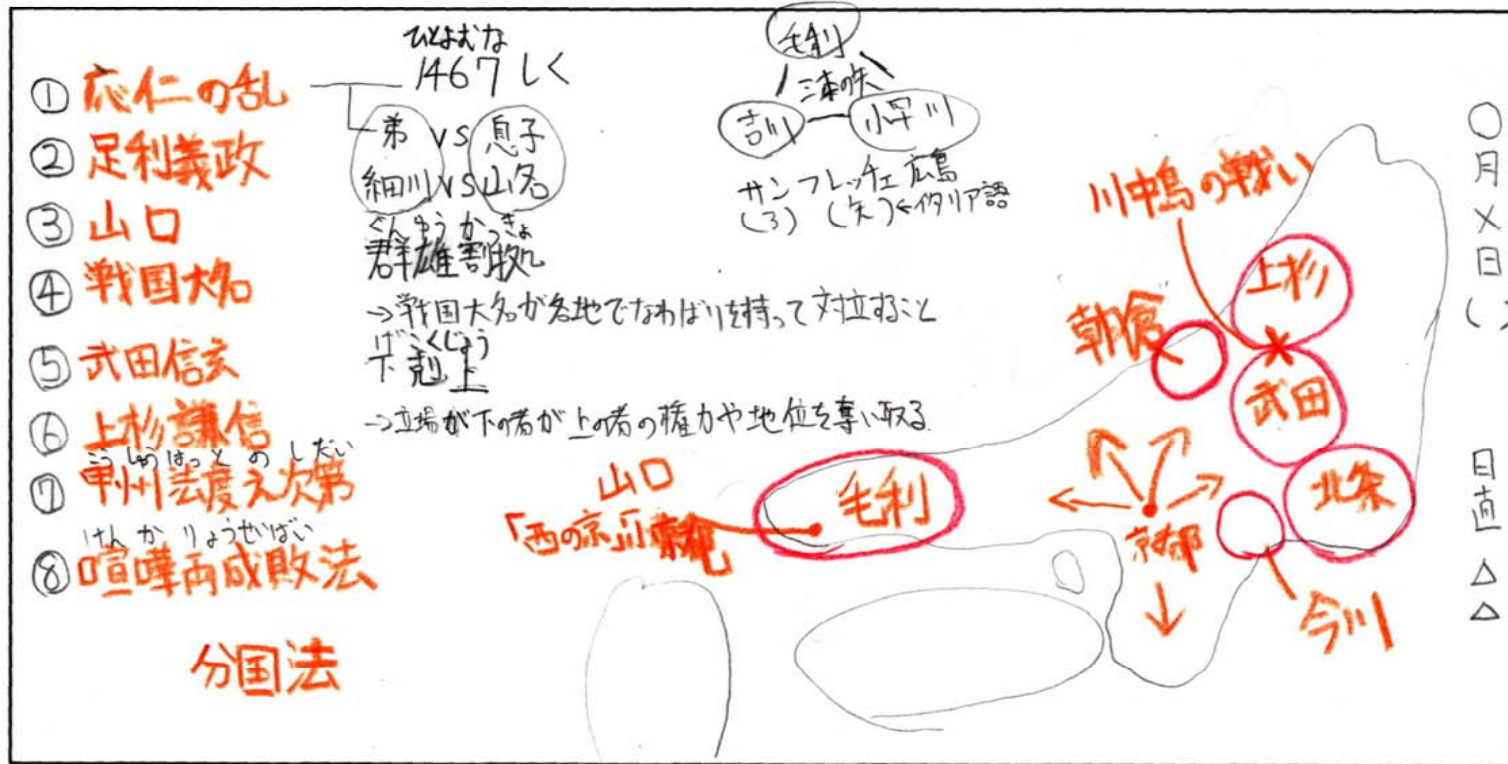 ① 応仁の乱
② 足利義政
③ 山口
④ 戦国大名
⑤ 武田信玄
⑥ 上杉謙信
こうしゅうはっとのしだい
⑦ 甲州法度之次第
けんかりょうせいばい
⑧ 喧嘩両成敗法
分国法
ひとよむな
1467しく
弟 VS 息子
細川 VS 山名
ぐんゆうかっきょ
群雄割拠
→戦国大名が各地でなわばりを持って対立すること
げこくじょう
下剋上
→立場が下の者が上の者の権力や地位を奪い取る
毛利
三本の矢
吉川 小早川
サンフレッチェ広島
(3) (矢)←イタリア語
川中島の戦い
上杉
朝倉
武田
北条
山口
「西の京」
毛利
京都
今川
○月×日( )
日直 △△